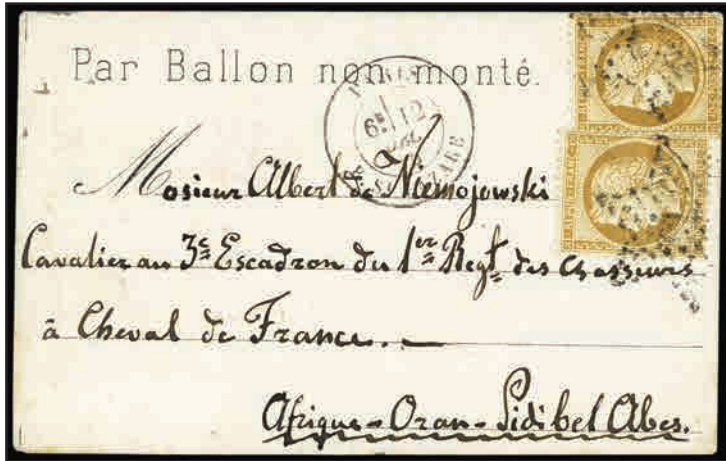 Par Ballon non monté.
6E 12
LAZARE
Mosieur Albert de Niemojowski
Cavalier au 3e Escadron du 1er Regt. des chasseurs
à Cheval de France. —
Afrique - Oran - Sidibel Abes.